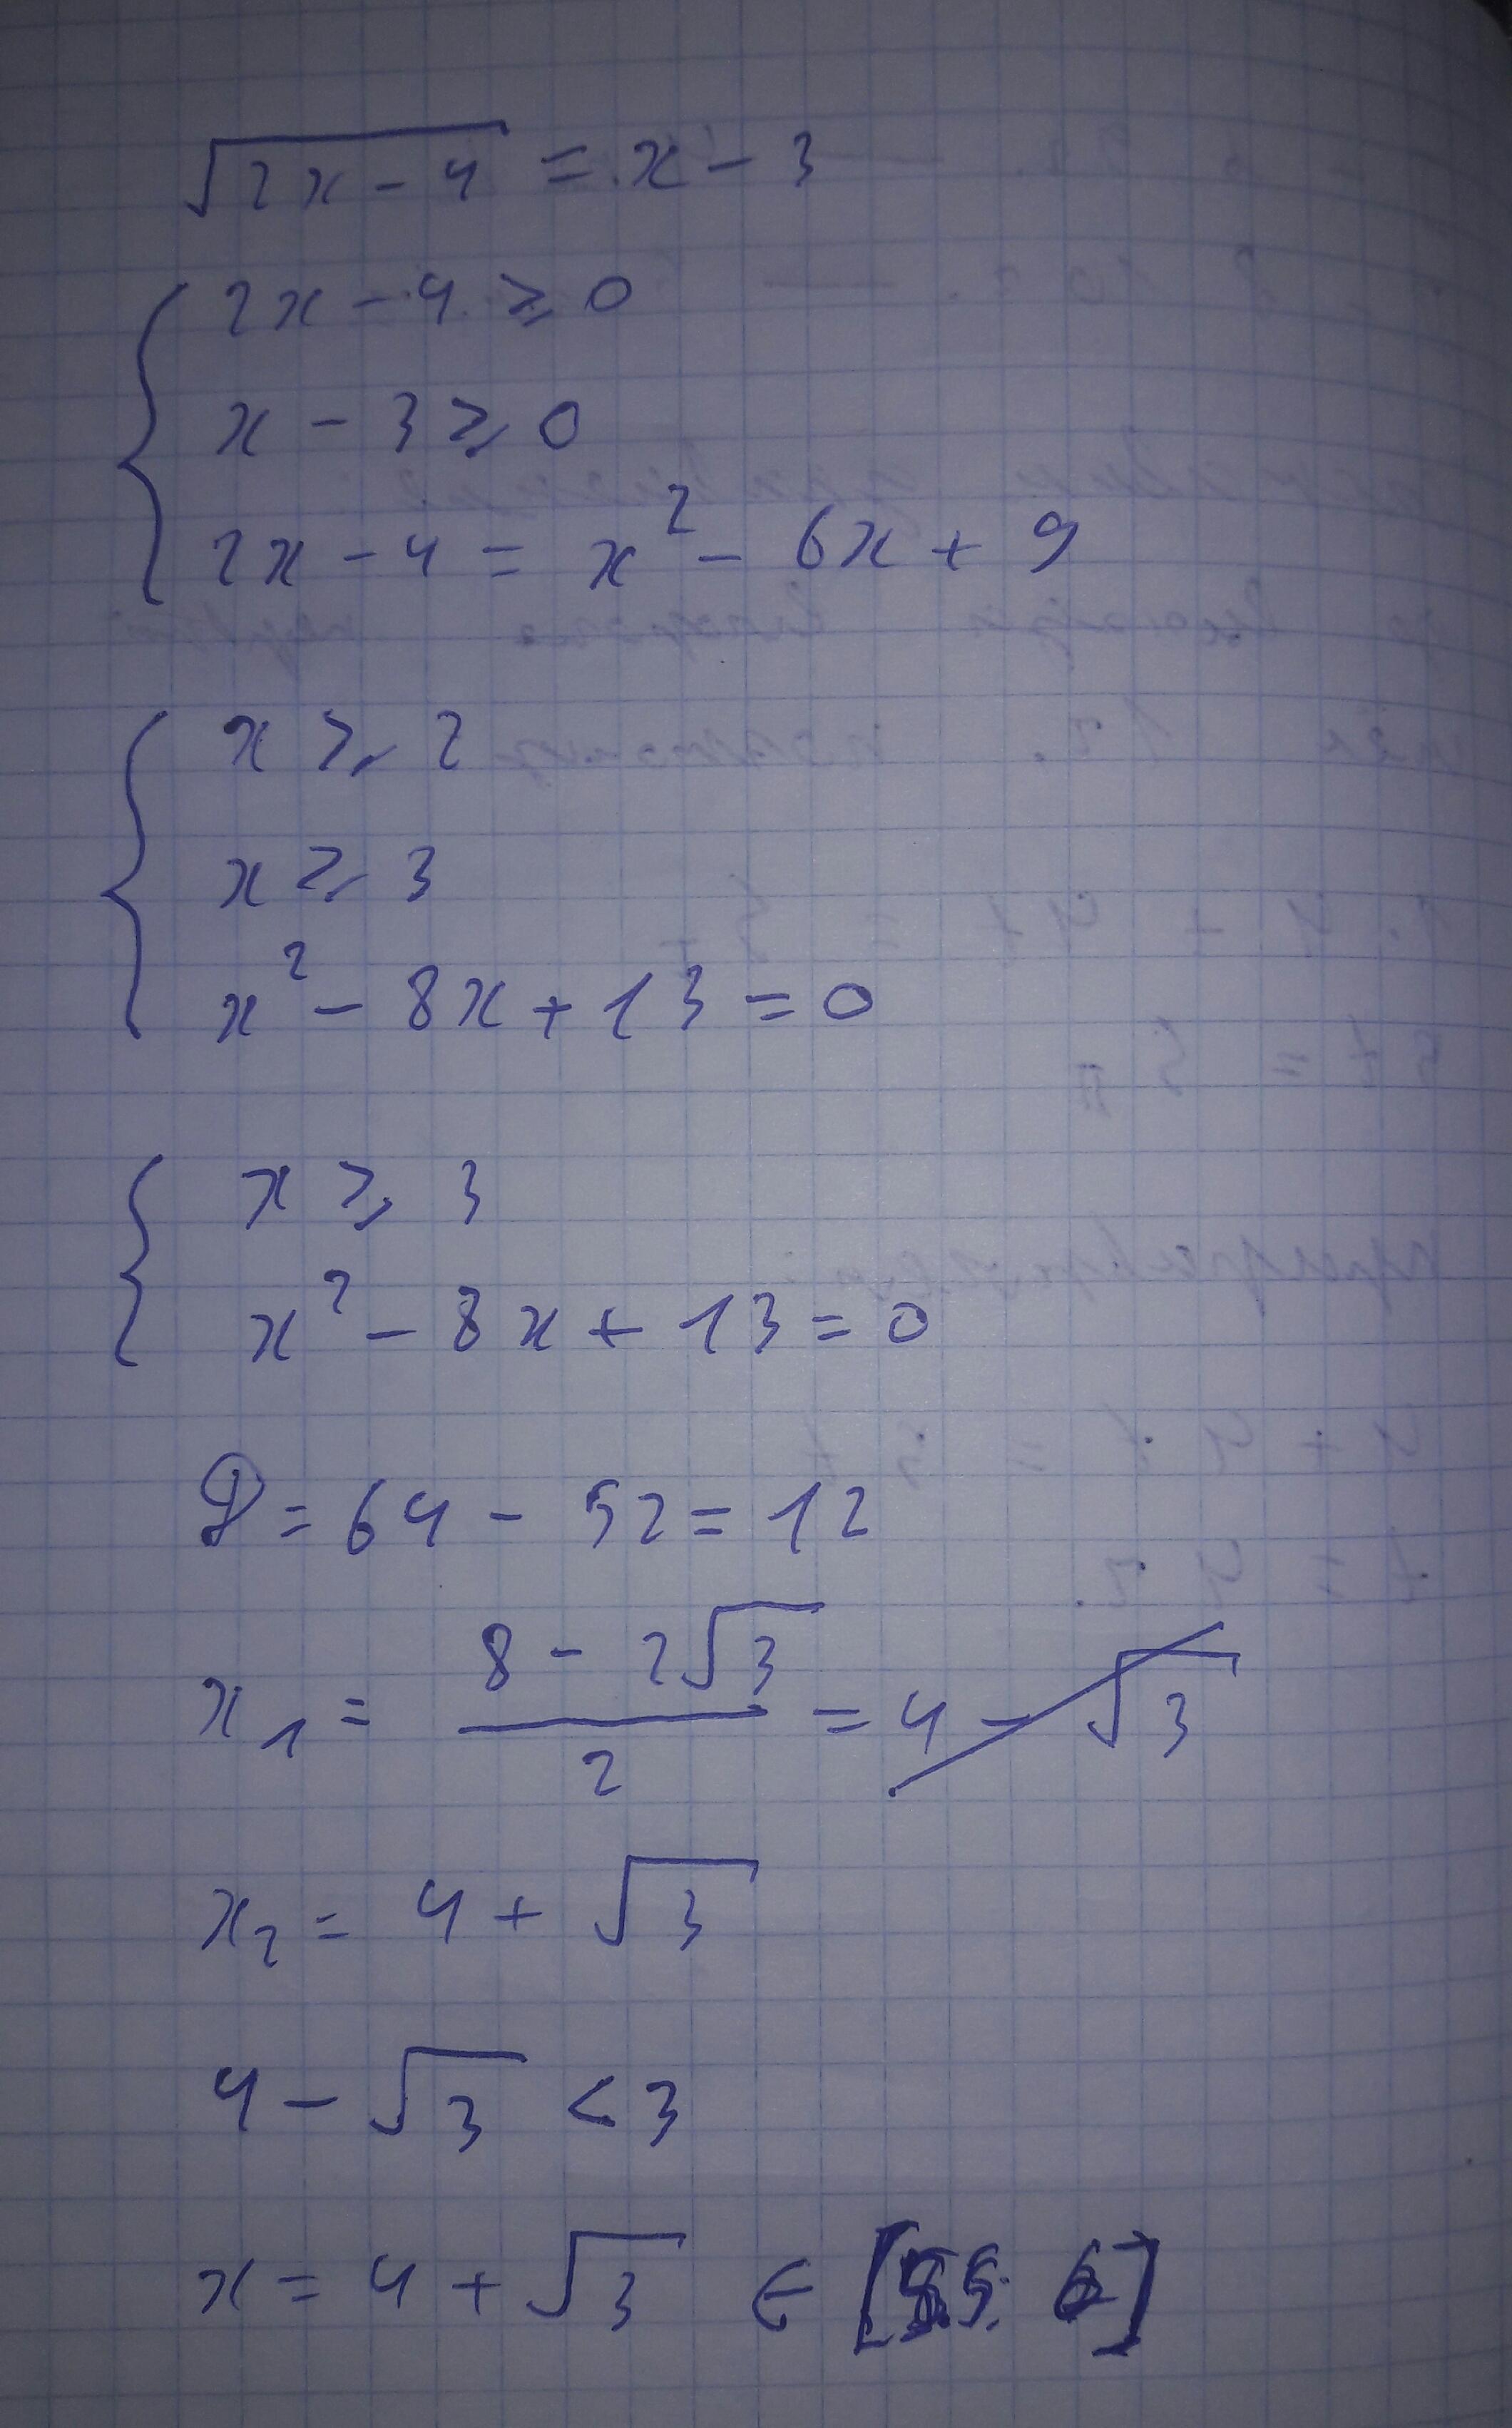 √(2x-4) = x - 3
2x - 4 ≥ 0
x - 3 ≥ 0
2x - 4 = x² - 6x + 9
x ≥ 2
x ≥ 3
x² - 8x + 13 = 0
x ≥ 3
x² - 8x + 13 = 0
D = 64 - 52 = 12
x₁ = (8 - 2√3)/2 = 4 - √3
x₂ = 4 + √3
4 - √3 < 3
x = 4 + √3 ∈